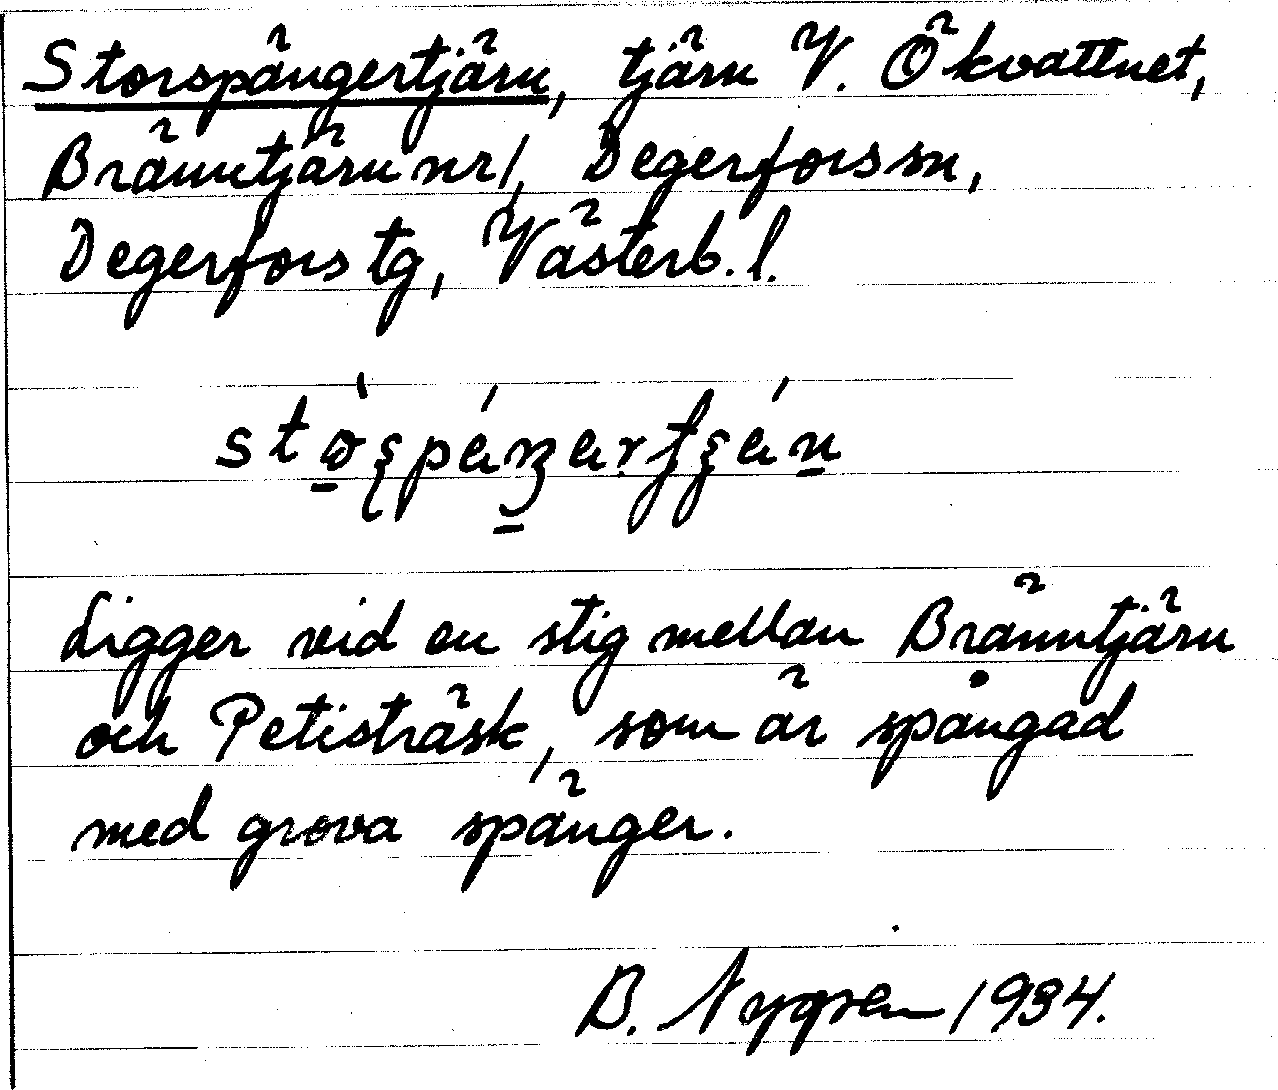 Storspängertjärn, tjärn V. Ökvattnet,
Bränntjärn nr 1, Degerfors sn,
Degerfors tg, Västerb. l.
Ligger vid en stig mellan Bränntjärn
och Petisträsk, som är spångad
med grova spänger.
B. Nygren 1934.